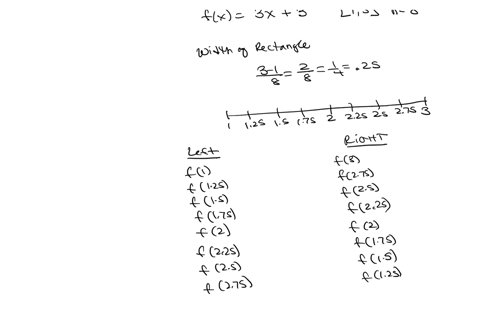 f(x) = 3x + 3
Width of Rectangle
3-1/8 = 2/8 = 1/4 = .25
1 1.25 1.5 1.75 2 2.25 2.5 2.75 3
Left
f(1)
f(1.25)
f(1.5)
f(1.75)
f(2)
f(2.25)
f(2.5)
f(2.75)
RIGHT
f(3)
f(2.75)
f(2.5)
f(2.25)
f(2)
f(1.75)
f(1.5)
f(1.25)